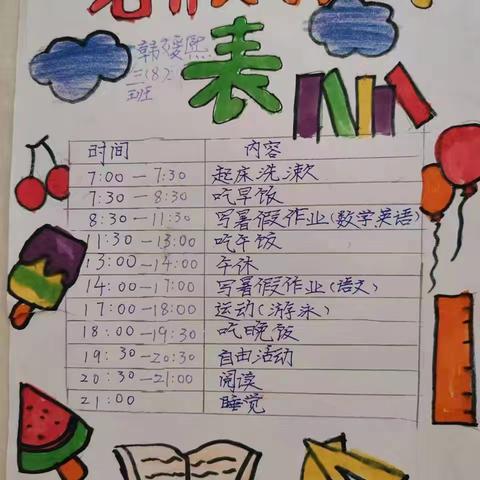 表
三(8)
班
时间 内容
7:00 — 7:30 起床洗漱
7:30 — 8:30 吃早饭
8:30 — 11:30 写暑假作业(数学英语)
11:30 — 13:00 吃午饭
13:00 — 14:00 午休
14:00 — 17:00 写暑假作业(语文)
17:00 — 18:00 运动(游泳)
18:00 — 19:30 吃晚饭
19:30 — 20:30 自由活动
20:30 — 21:00 阅读
21:00 睡觉